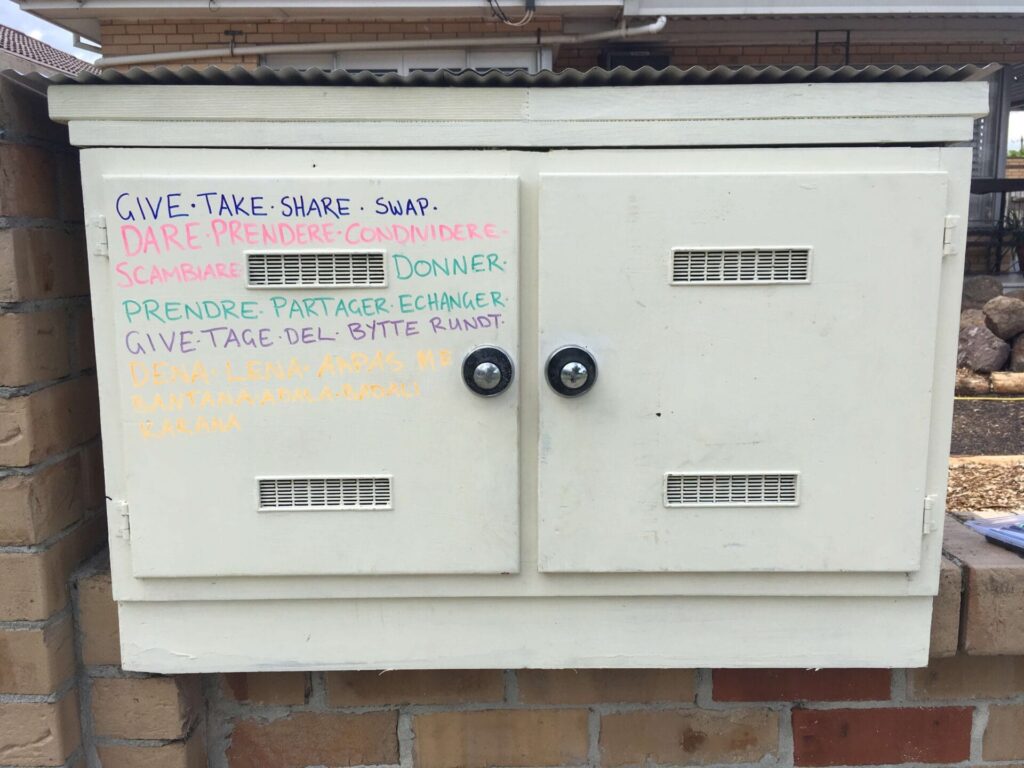 GIVE · TAKE · SHARE · SWAP ·
DARE · PRENDERE · CONDIVIDERE ·
SCAMBIARE DONNER ·
PRENDRE · PARTAGER · ECHANGER ·
GIVE · TAGE · DEL · BYTTE RUNDT ·
DENA · LENA · AAPAS ME
BANTANA · ADALA · BADALI
KARANA